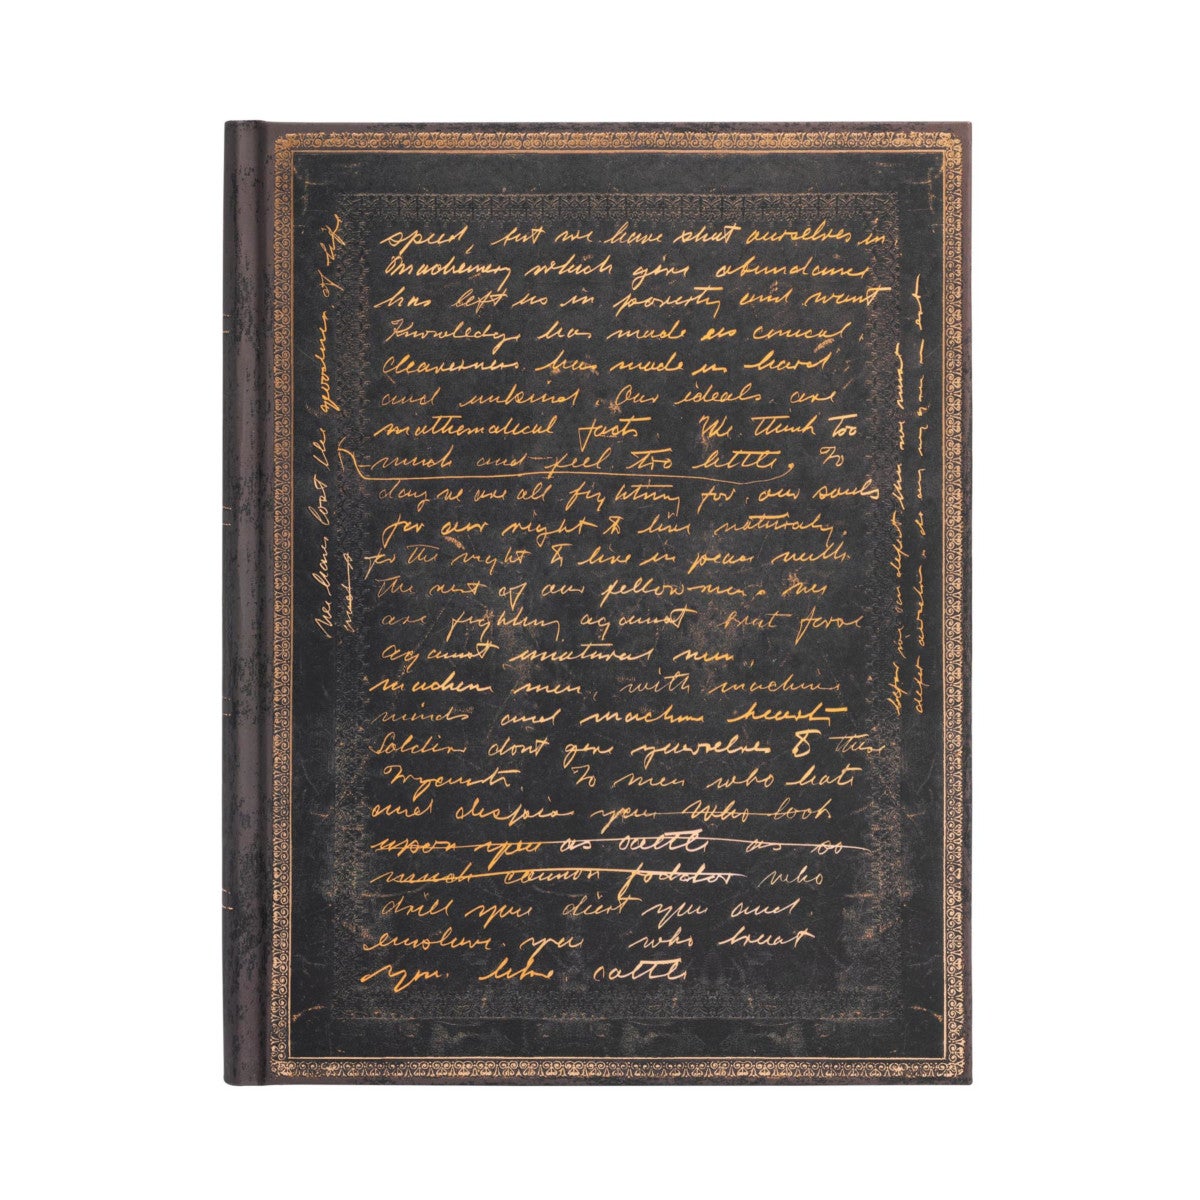 speed, but we have shut ourselves in
Machinery which give abundance
has left us in poverty and want
Knowledge has made us cinical,
cleaverness has made us hard
and unkind. Our ideals are
mathematical facts. We think too
much and feel too little. To
day we are all fighting for our souls
for our right to live naturaly.
for the right to live in peace with
the rest of our fellowmen. We
are fighting against brut force
against unatural men,
machine men, with machine
minds and machine hearts
Soldiers dont give yourselves to these
To men who hate
and despise you who look
upon you as cattle as so
much cannon fodder who
drill you diert you and
enslave you who treat
you like cattle
We have lost the goodness of life